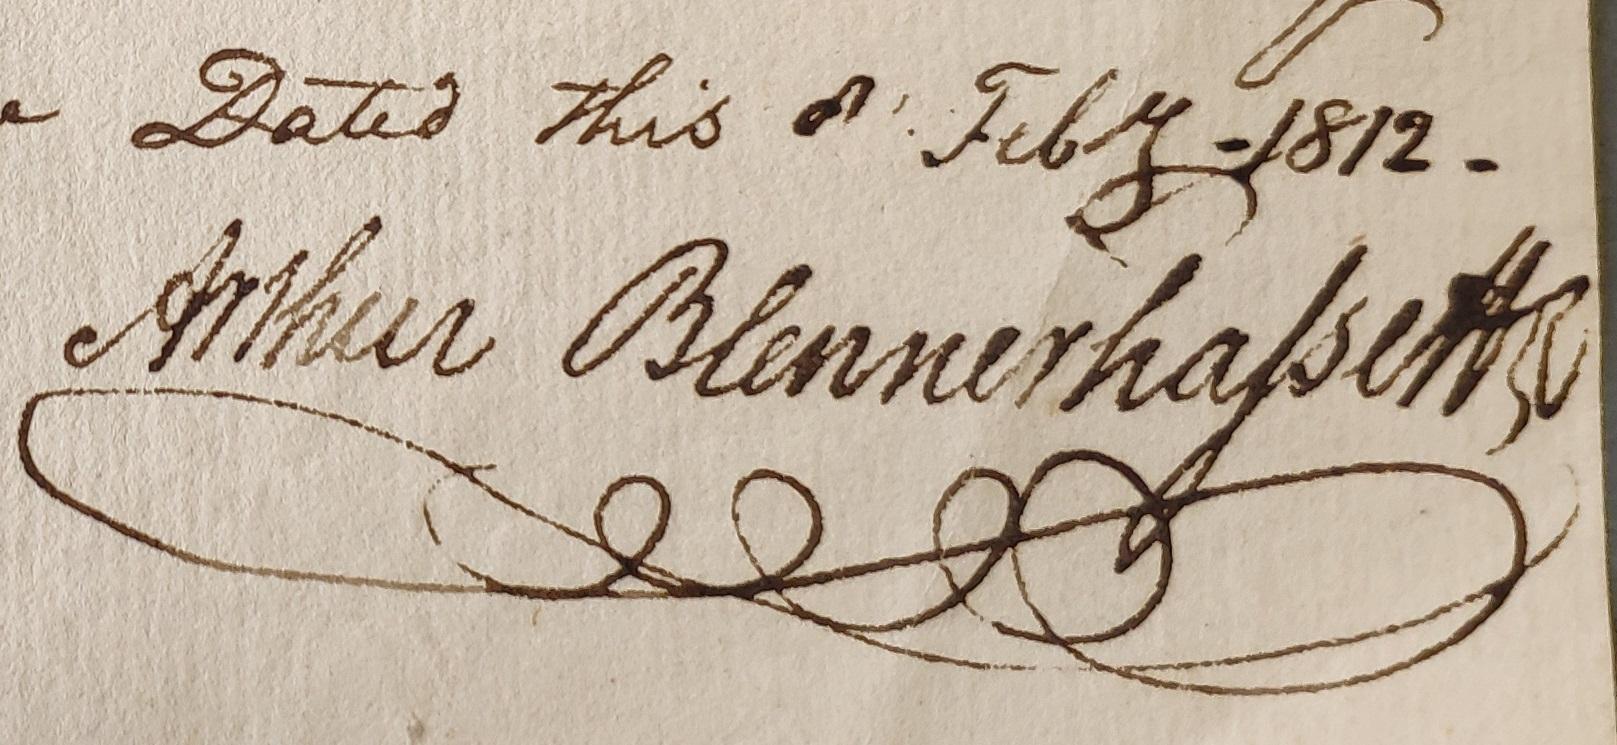 Dated this Feby - 1812 -
Arthur Blennerhaſsett